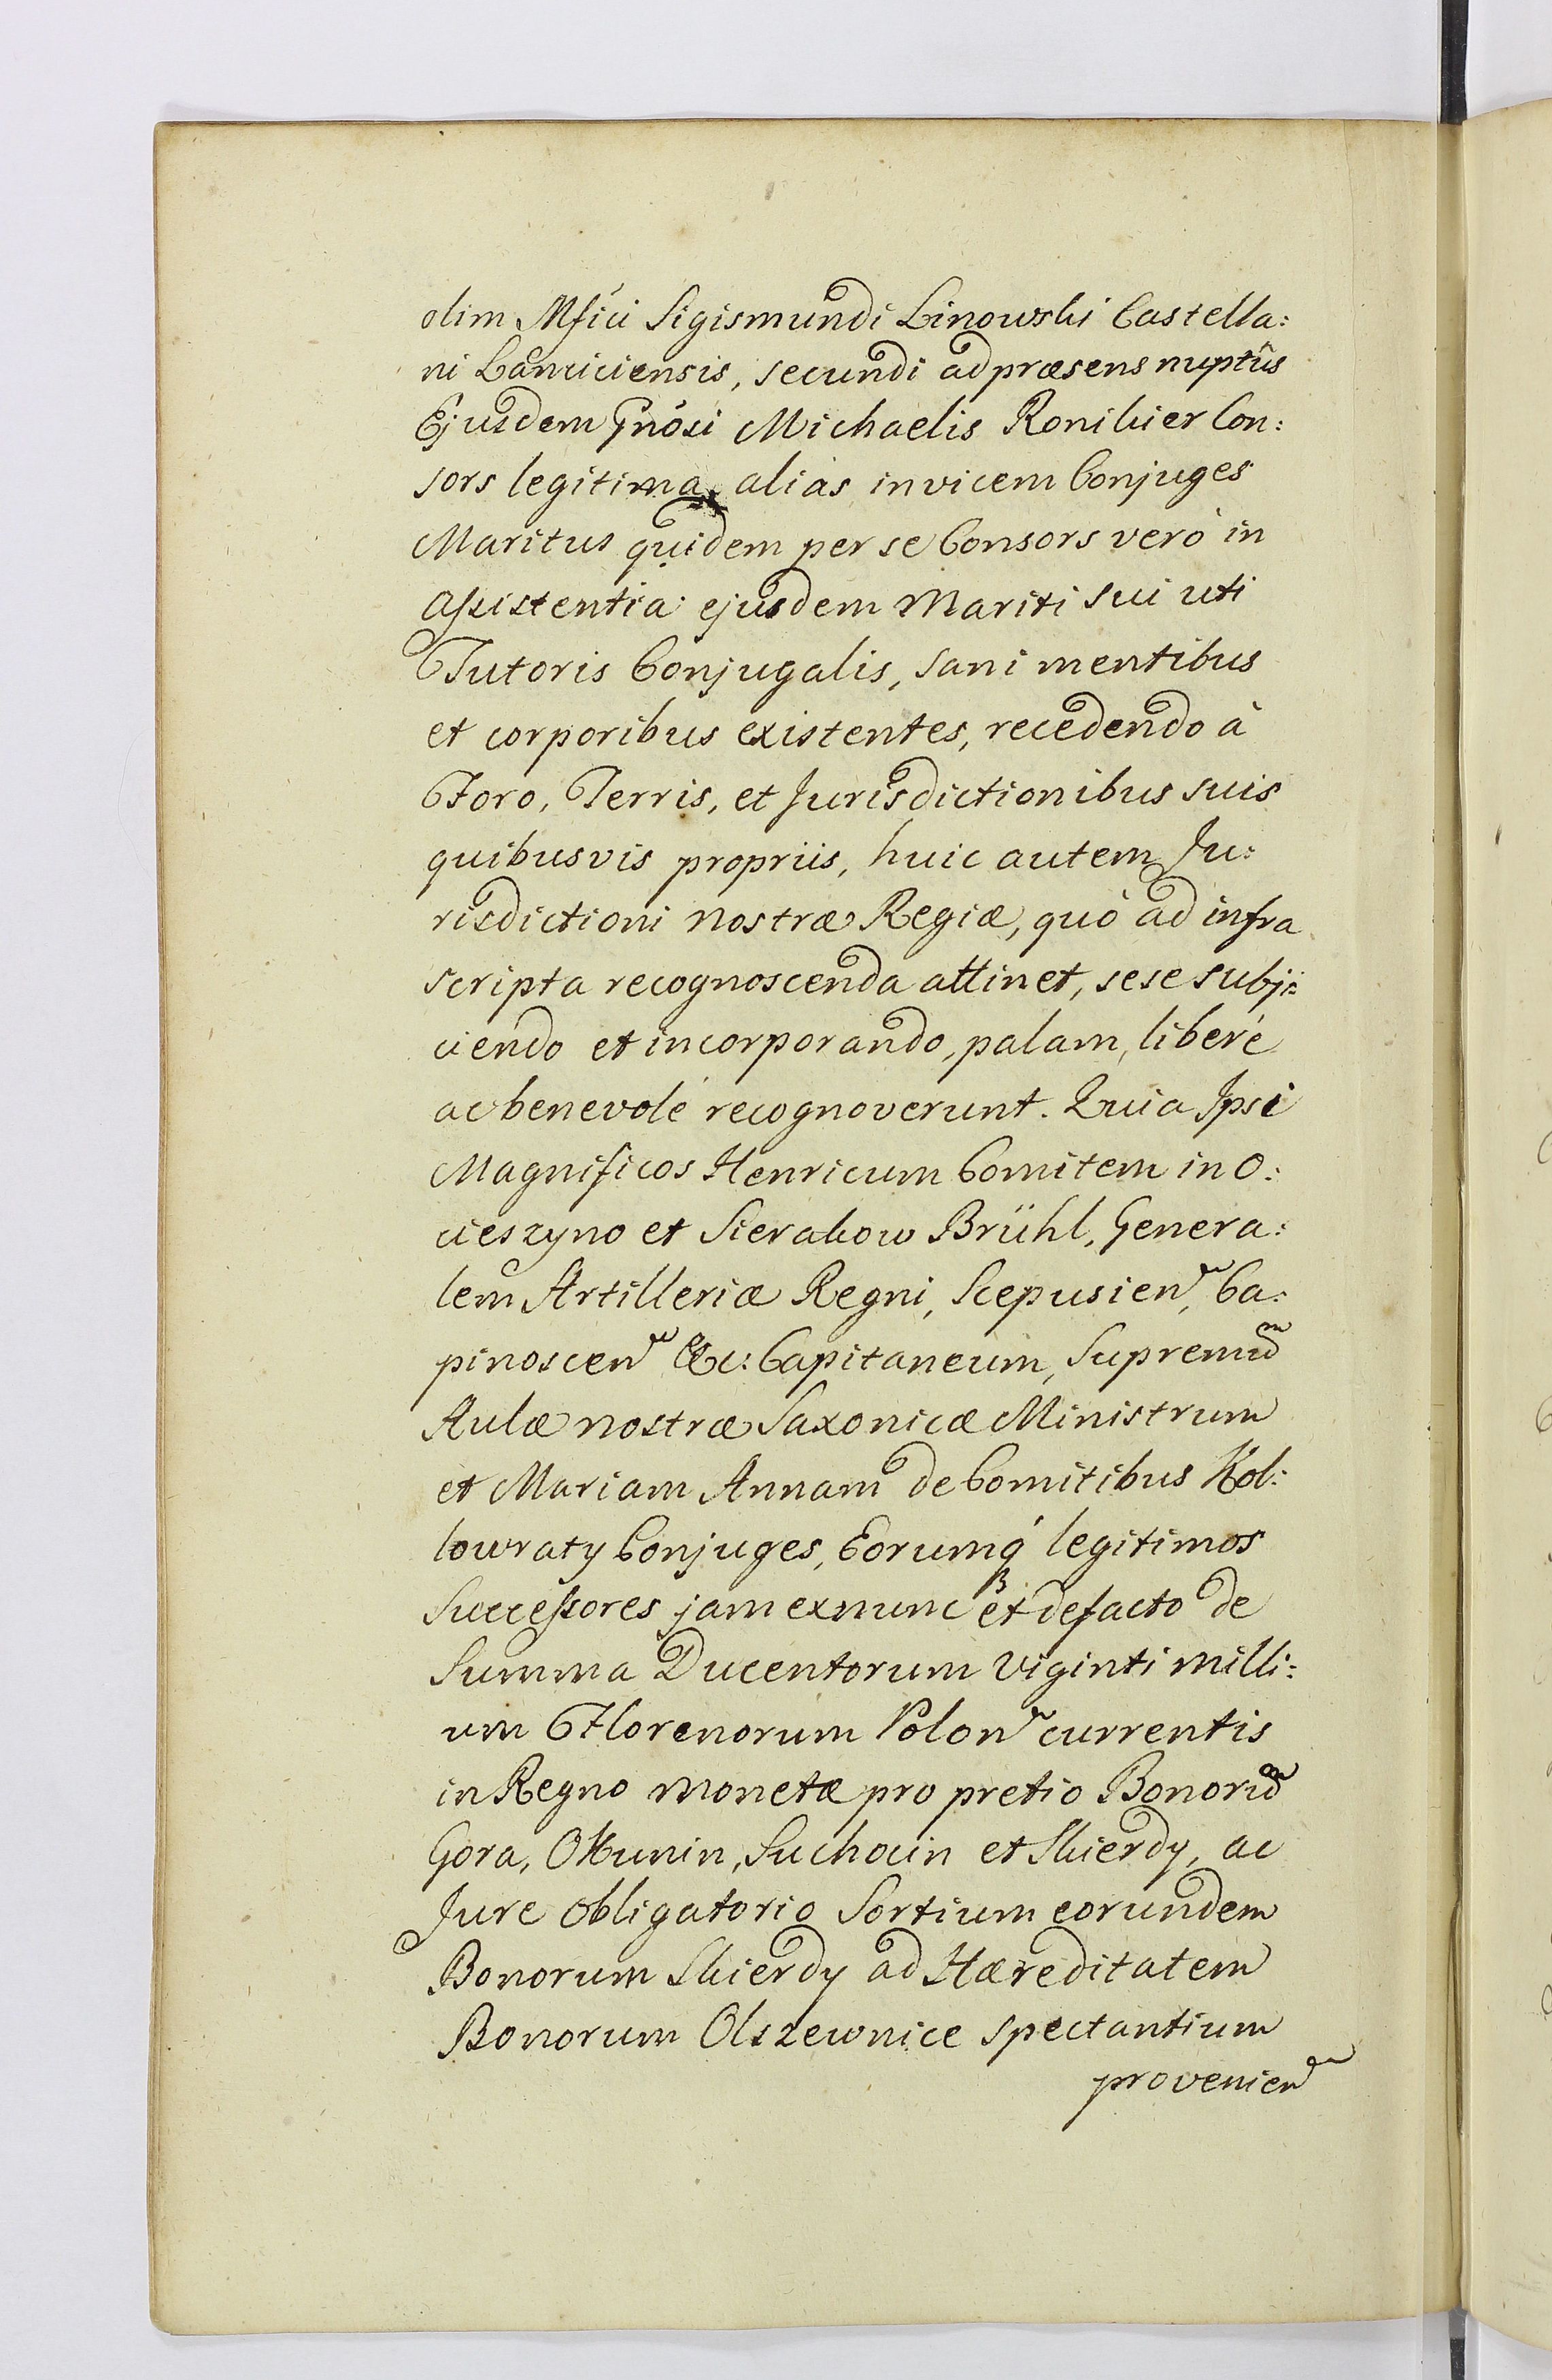 olim Mfici Sigismundi Linowski Castella:
ni Lanciciensis, secundi ad præsens nuptûs
Ejusdem Gnosi Michaelis Ronikier Con:
sors legitima, aliàs invicem Conjuges
Maritus quidem per se Consors verò in
Assistentia ejusdem Mariti sui uti
Tutoris Conjugalis, sani mentibus
et corporibus existentes, recedendo à
Foro, Terris, et Jurisdictionibus suis
quibusvis propriis, huic autem Ju:
risdictioni nostræ Regiæ, quò ad infra
scripta recognoscenda attinet, sese subji:
ciendo et incorporando, palam, liberè
ac benevolè recognoverunt. Quia Ipsi
Magnificos Henricum Comitem in O:
cieszyno et Sierakow Brühl, Genera:
lem Artilleriæ Regni, Scepusien, Ca:
pinoscen &c: Capitaneum, Supremum
Aulæ nostræ Saxonicæ Ministrum
et Mariam Annam de Comitibus Kol:
lowraty Conjuges, Eorumq́ legitimos
Successores jam exnunc et defacto de
Summa Ducentorum viginti milli:
um Florenorum Polon currentis
in Regno monetæ pro pretio Bonorum
Gora, Okunin, Suchocin et Skierdy, ac
Jure obligatorio Sortium eorundem
Bonorum Skierdy ad Hæreditatem
Bonorum Olszewnice spectantium
provenien